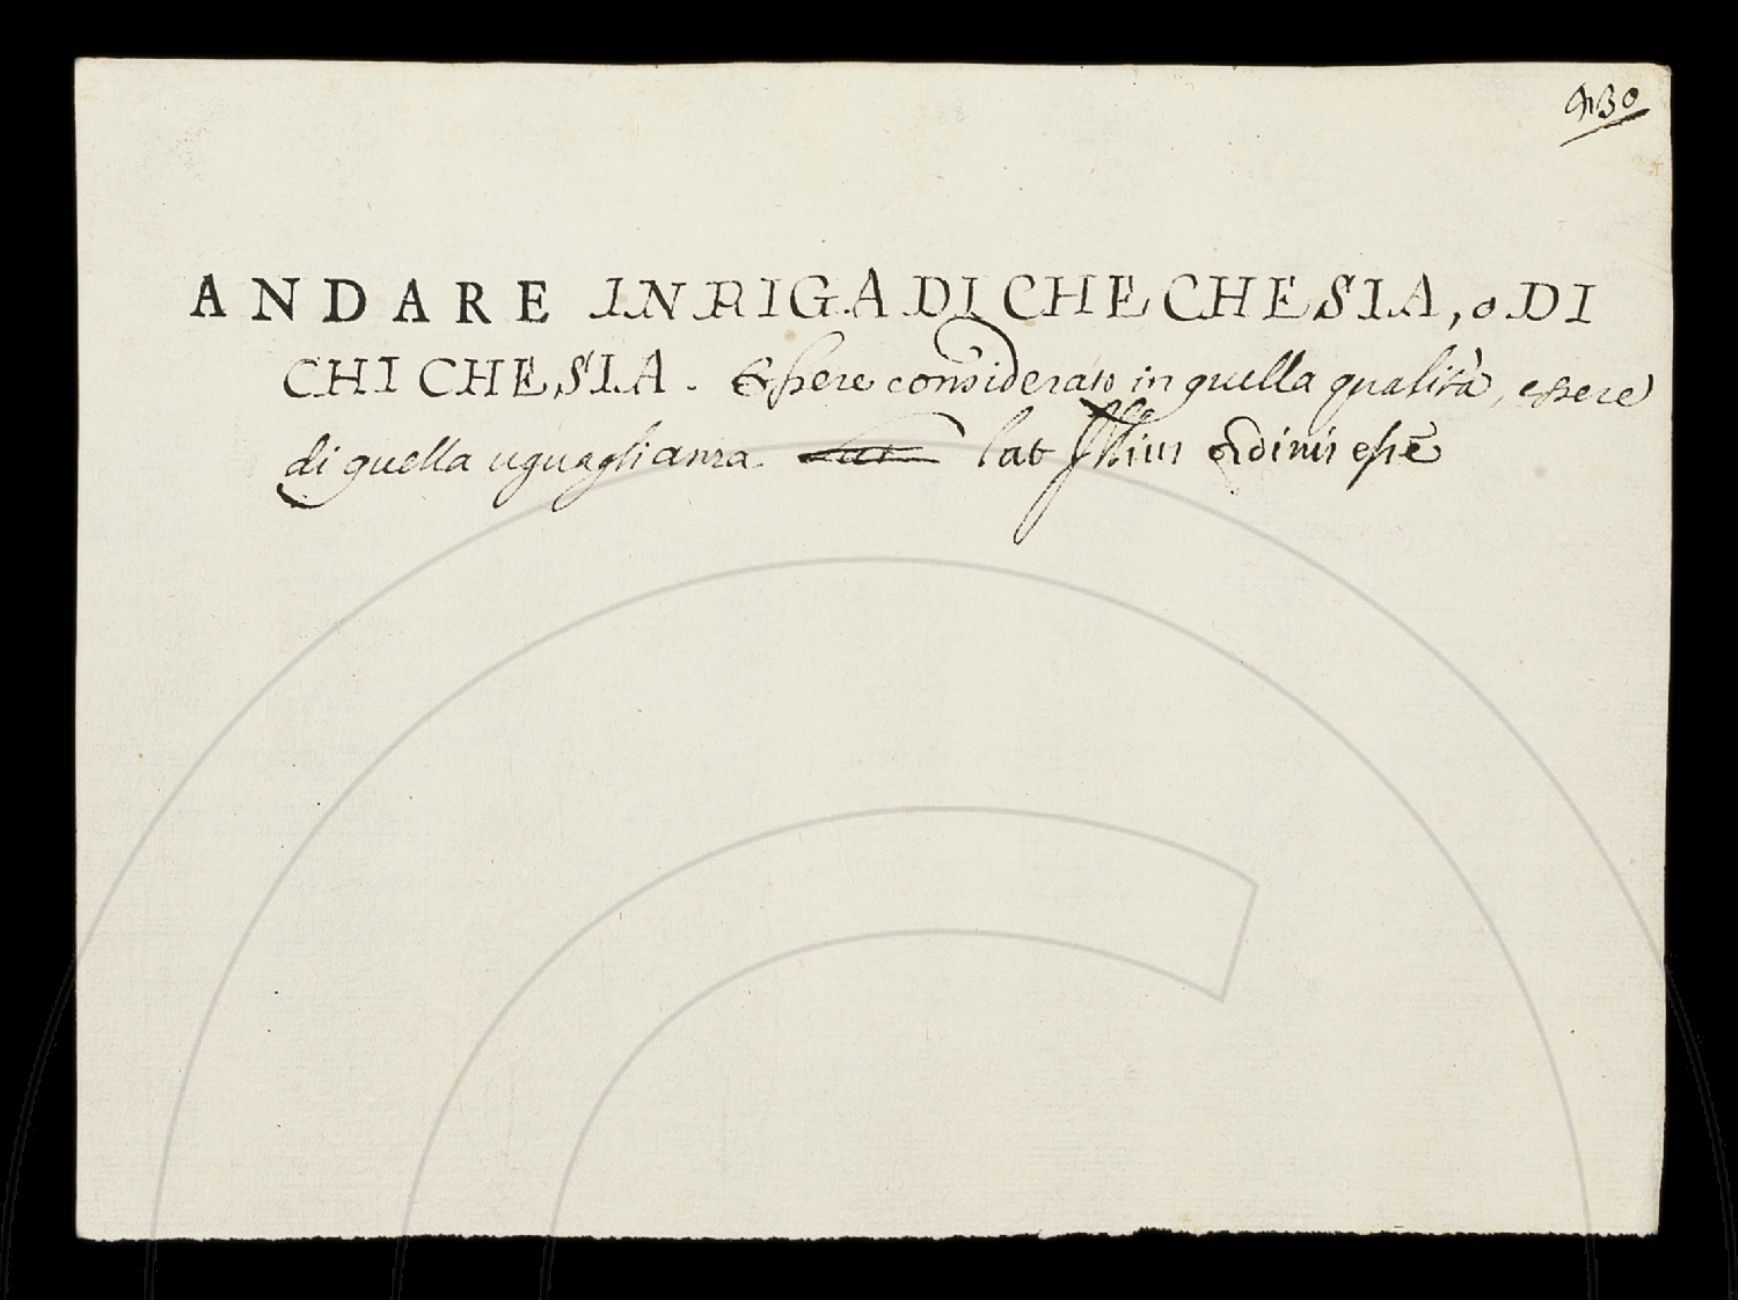 ANDARE IN RIGA DI CHE CHE SIA, o DI
CHI CHE SIA. Essere considerato in quella qualità, essere
di quella uguaglianza lat Illius ordinis esse